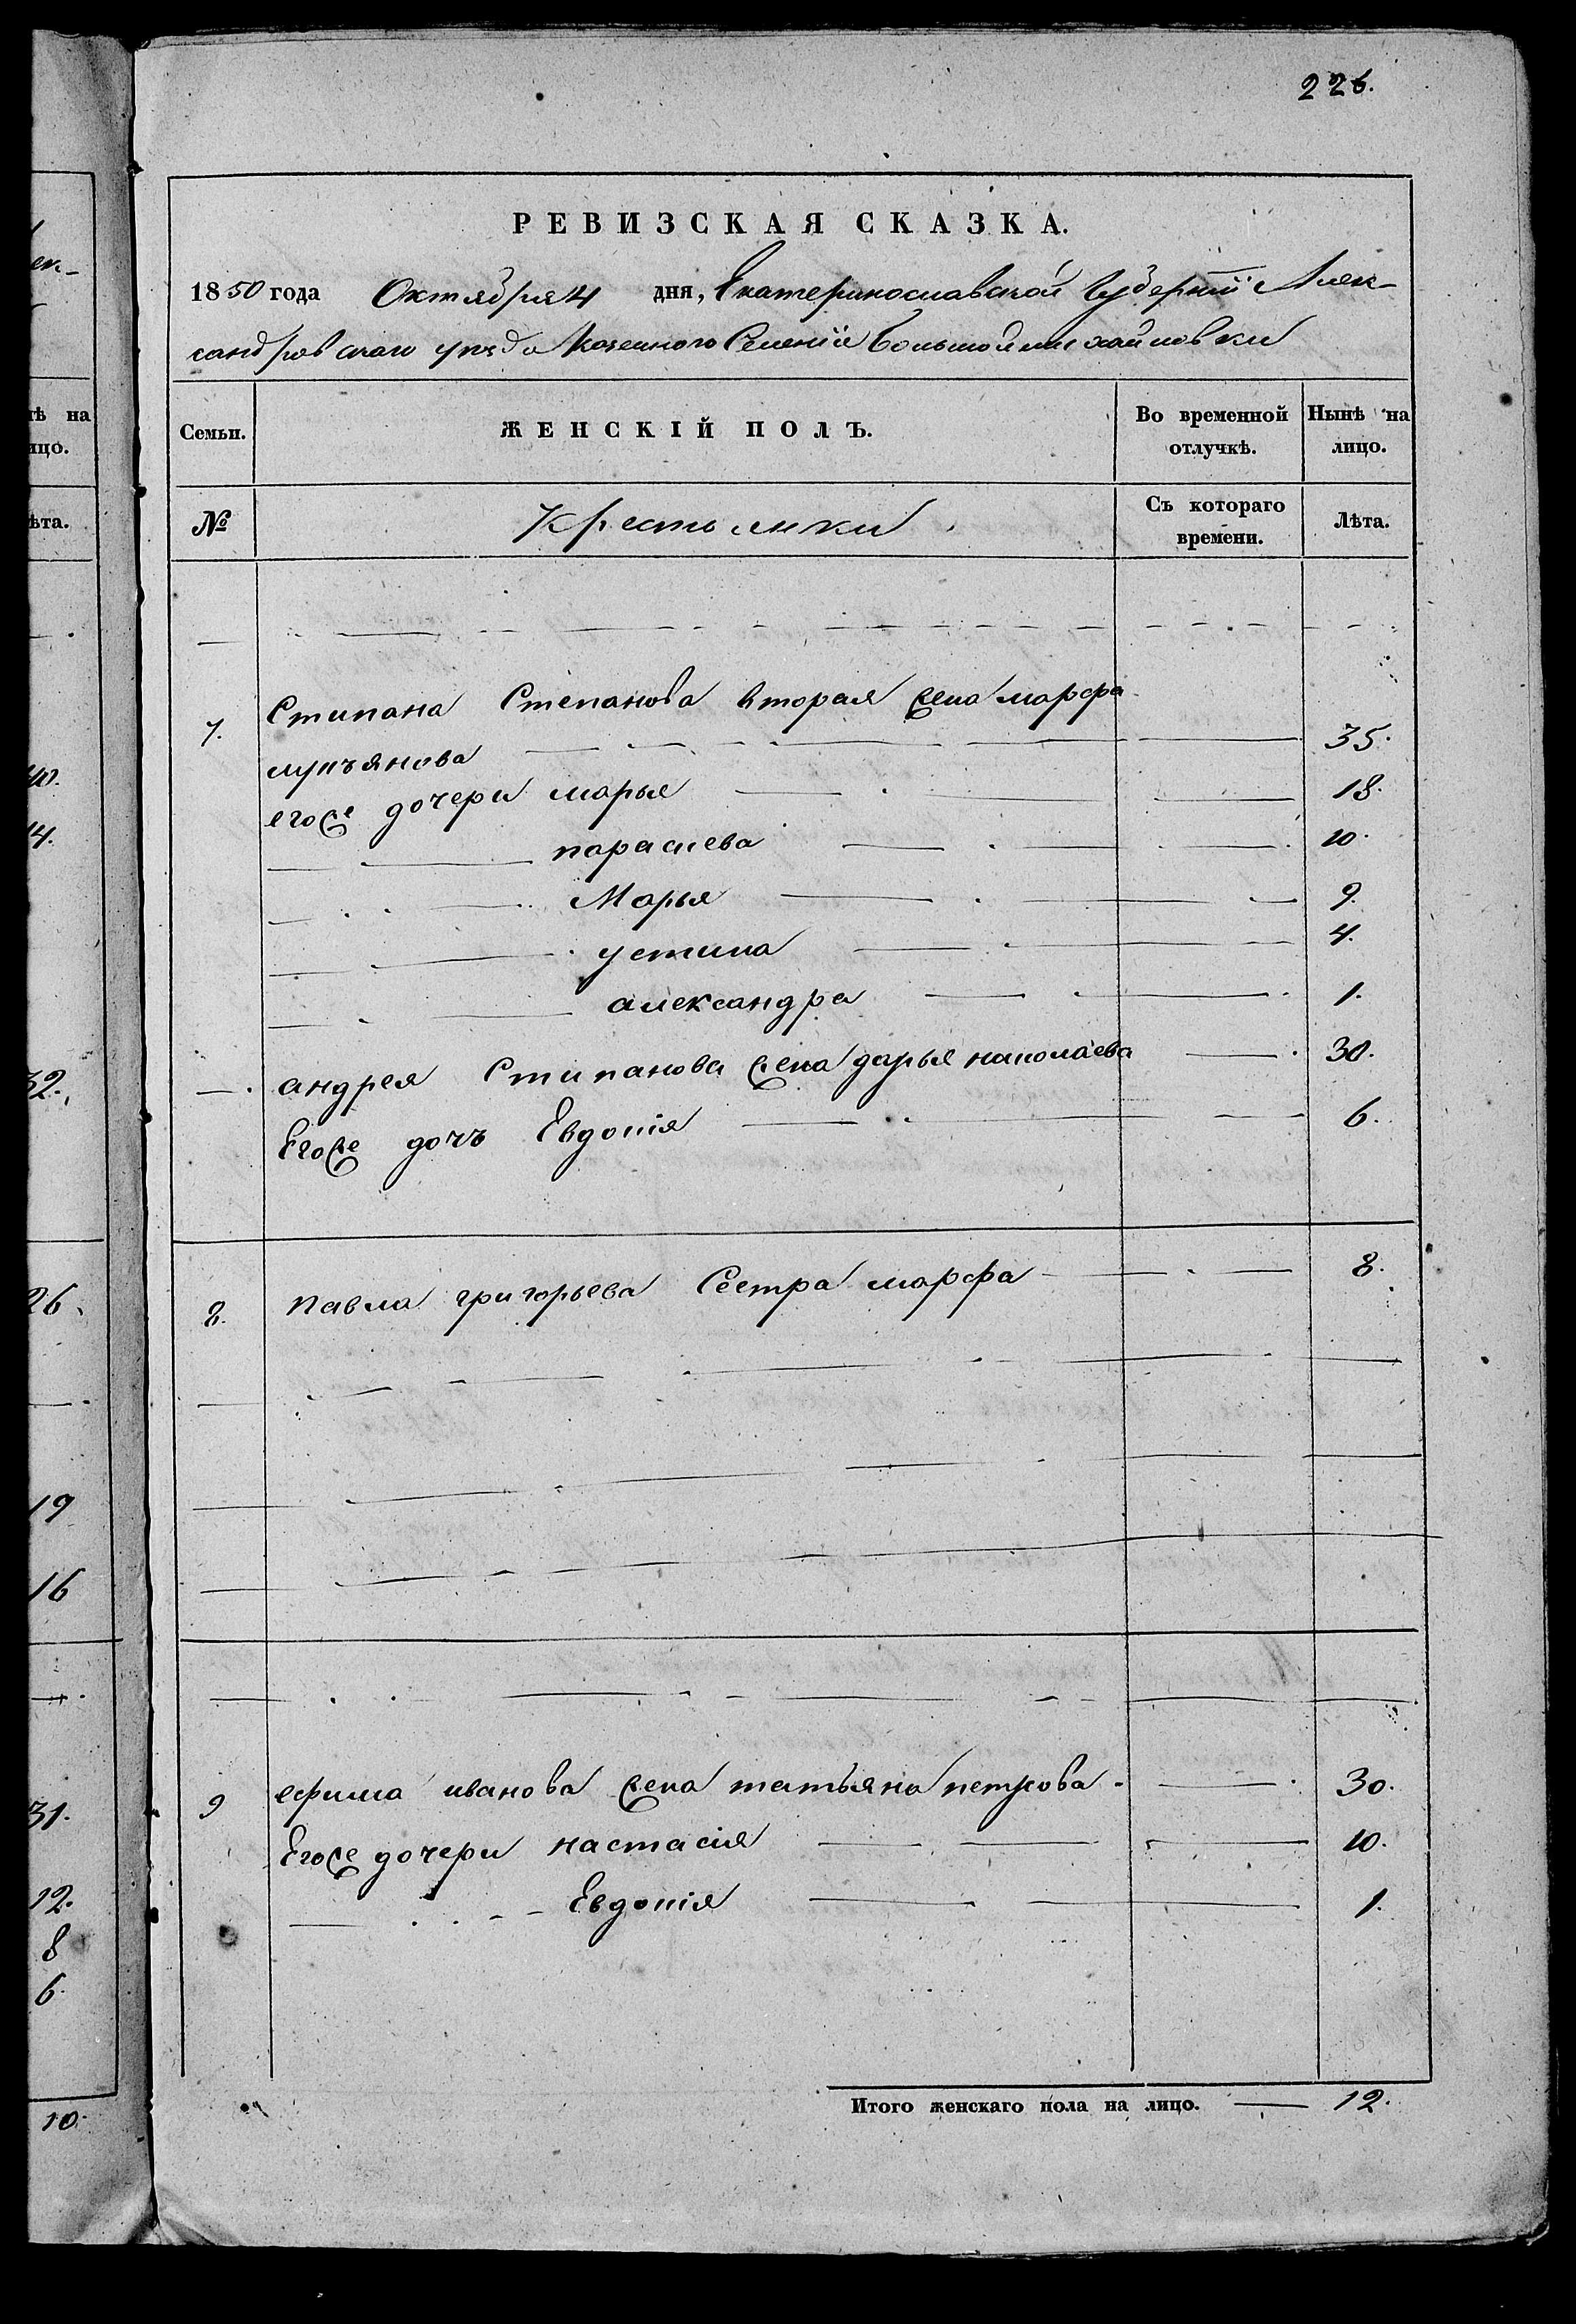 226.
РЕВИЗСКАЯ СКАЗКА.
1850 года Октября 4 дня, Екатеринославской Губернiи Алек-
сандровскаго уѣзда Казенного Селенiя Большой михайловки
Семьи. ЖЕНСКІЙ ПОЛЪ. Во временной отлучкѣ. Нынѣ на лицо.
№ Крестьянки Съ котораго времени. Лѣта.
7. Стипана Степанова вторая жена марфа
лукъянова 35.
егоже дочери марья 18.
параскева 10.
Марья 9.
устина 4.
александра 1.
андрея Стипанова жена дарья николаева 30.
Егоже дочъ Евдокія 6.
8. павла григорьева Сестра марфа 8.
9 ефима иванова жена татьяна петрова 30.
Егоже дочери настасія 10.
Евдокія 1.
Итого женскаго пола на лицо. 12.
тѣ на
ицо.
ѣта.
40.
14.
32.
26.
19
16
31.
12.
8
6.
10.